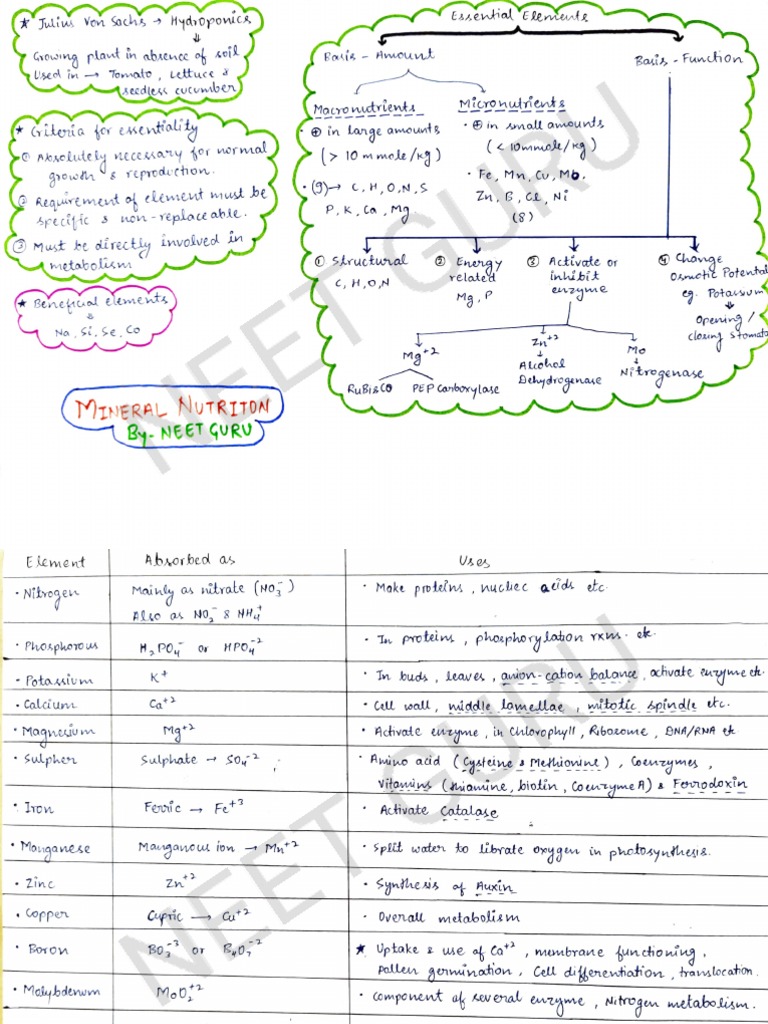 ★ Julius Von Sachs → Hydroponics
⇓
Growing plant in absence of soil
Used in → Tomato, Lettuce &
seedless cucumber
★ Criteria for essentiality
① Absolutely necessary for normal
growth & reproduction.
② Requirement of element must be
specific & non-replaceable.
③ Must be directly involved in
metabolism
★ Beneficial elements
Na, Si, Se, Co
MINERAL NUTRITON
By- NEET GURU
Essential Elements
Basis - Amount
Basis - Function
Macronutrients
• ⊕ in large amounts
(> 10 mmole/kg)
• (9) → C, H, O, N, S
P, K, Ca, Mg
Micronutrients
• ⊕ in small amounts
(< 10mmole/kg)
• Fe, Mn, Cu, Mo.
Zn, B, Cl, Ni
(8)
① Structural
C, H, O, N
② Energy
related
Mg, P
③ Activate or
inhibit
enzyme
④ Change
Osmotic Potential
eg. Potassium
↓
Opening /
closing stomata
Mg+2
RuBisCO PEP Carboxylase
Zn+2
↓
Alcohol
Dehydrogenase
Mo
↓
Nitrogenase
Element Absorbed as Uses
• Nitrogen Mainly as nitrate (NO3-) • Make proteins, nucliec acids etc.
Also as NO2- & NH4+
• Phosphorous H2PO4- or HPO4-2 • In proteins, phosphorylation rxns. etc.
• Potassium K+ • In buds, leaves, anion-cation balance, activate enzyme etc.
• Calcium Ca+2 • Cell wall, middle lamellae, mitotic spindle etc.
• Magnesium Mg+2 • Activate enzyme, in Chlorophyll, Ribosome, DNA/RNA etc
• Sulpher Sulphate → SO4-2 • Amino acid (Cysteine & Methionine), Coenzymes,
Vitamins (thiamine, biotin, Coenzyme A) & Ferrodoxin
• Iron Ferric → Fe+3 • Activate Catalase
• Manganese Manganous ion → Mn+2 • Split water to librate oxygen in photosynthesis.
• Zinc Zn+2 • Synthesis of Auxin
• Copper Cupric → Cu+2 • Overall metabolism
• Boron BO3-3 or B4O7-2 ★ Uptake & use of Ca+2, membrane functioning,
pollen germination, Cell differentiation, translocation.
• Molybdenum MoO2+2 • Component of several enzyme, Nitrogen metabolism.
NEET GURU
NEET GURU